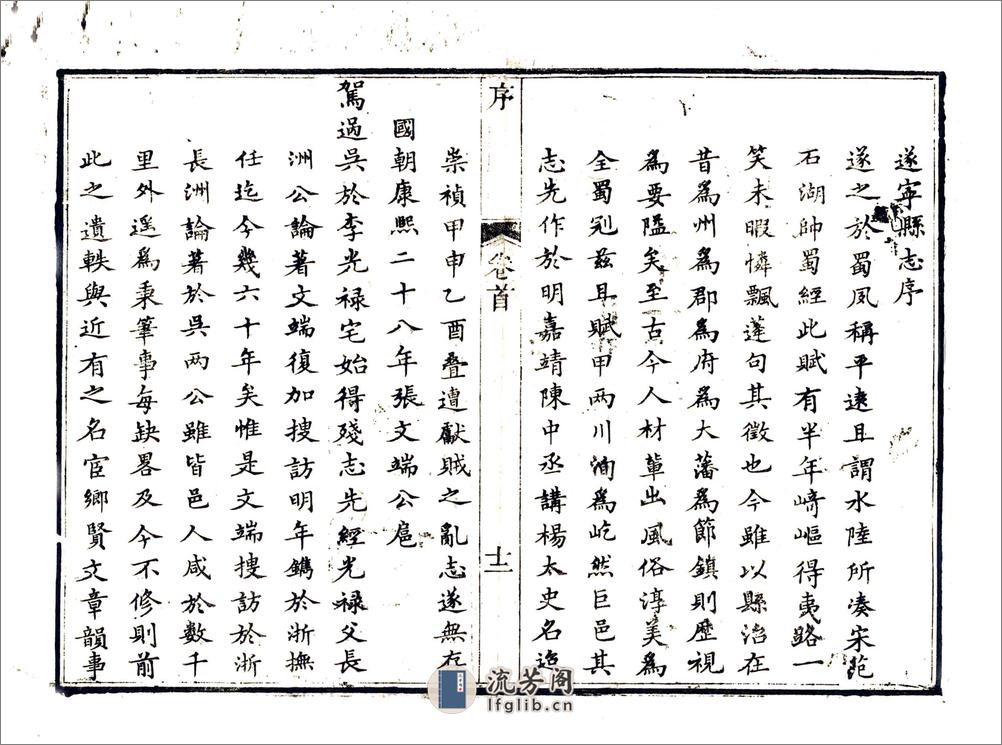 遂寧縣志序
遂之於蜀夙稱平遠且謂水陸所凑宋范
石湖帥蜀經此賦有半年﨑嶇得夷路一
笑未暇憐飄蓬句其徵也今雖以縣治在
昔為州為郡為府為大藩為節鎮則歷視
為要隘矣至古今人材軰出風俗淳美為
全蜀冠兹且賦甲兩川洵為屹然巨邑其
志先作於明嘉靖陳中丞講楊太史名迨
序
卷首
十二
崇禎甲申乙酉叠遭獻賊之亂志遂無存
國朝康熙二十八年張文端公扈
駕過吳於李光禄宅始得殘志先經光禄父長
洲公論著文端復加搜訪明年鐫於浙撫
任迄今幾六十年矣惟是文端搜訪於浙
長洲論著於吳兩公雖皆邑人咸於數千
里外遥為秉筆事每缺畧及今不修則前
此之遺軼與近有之名宦鄉賢文章韻事
流芳阁
lfglib.cn